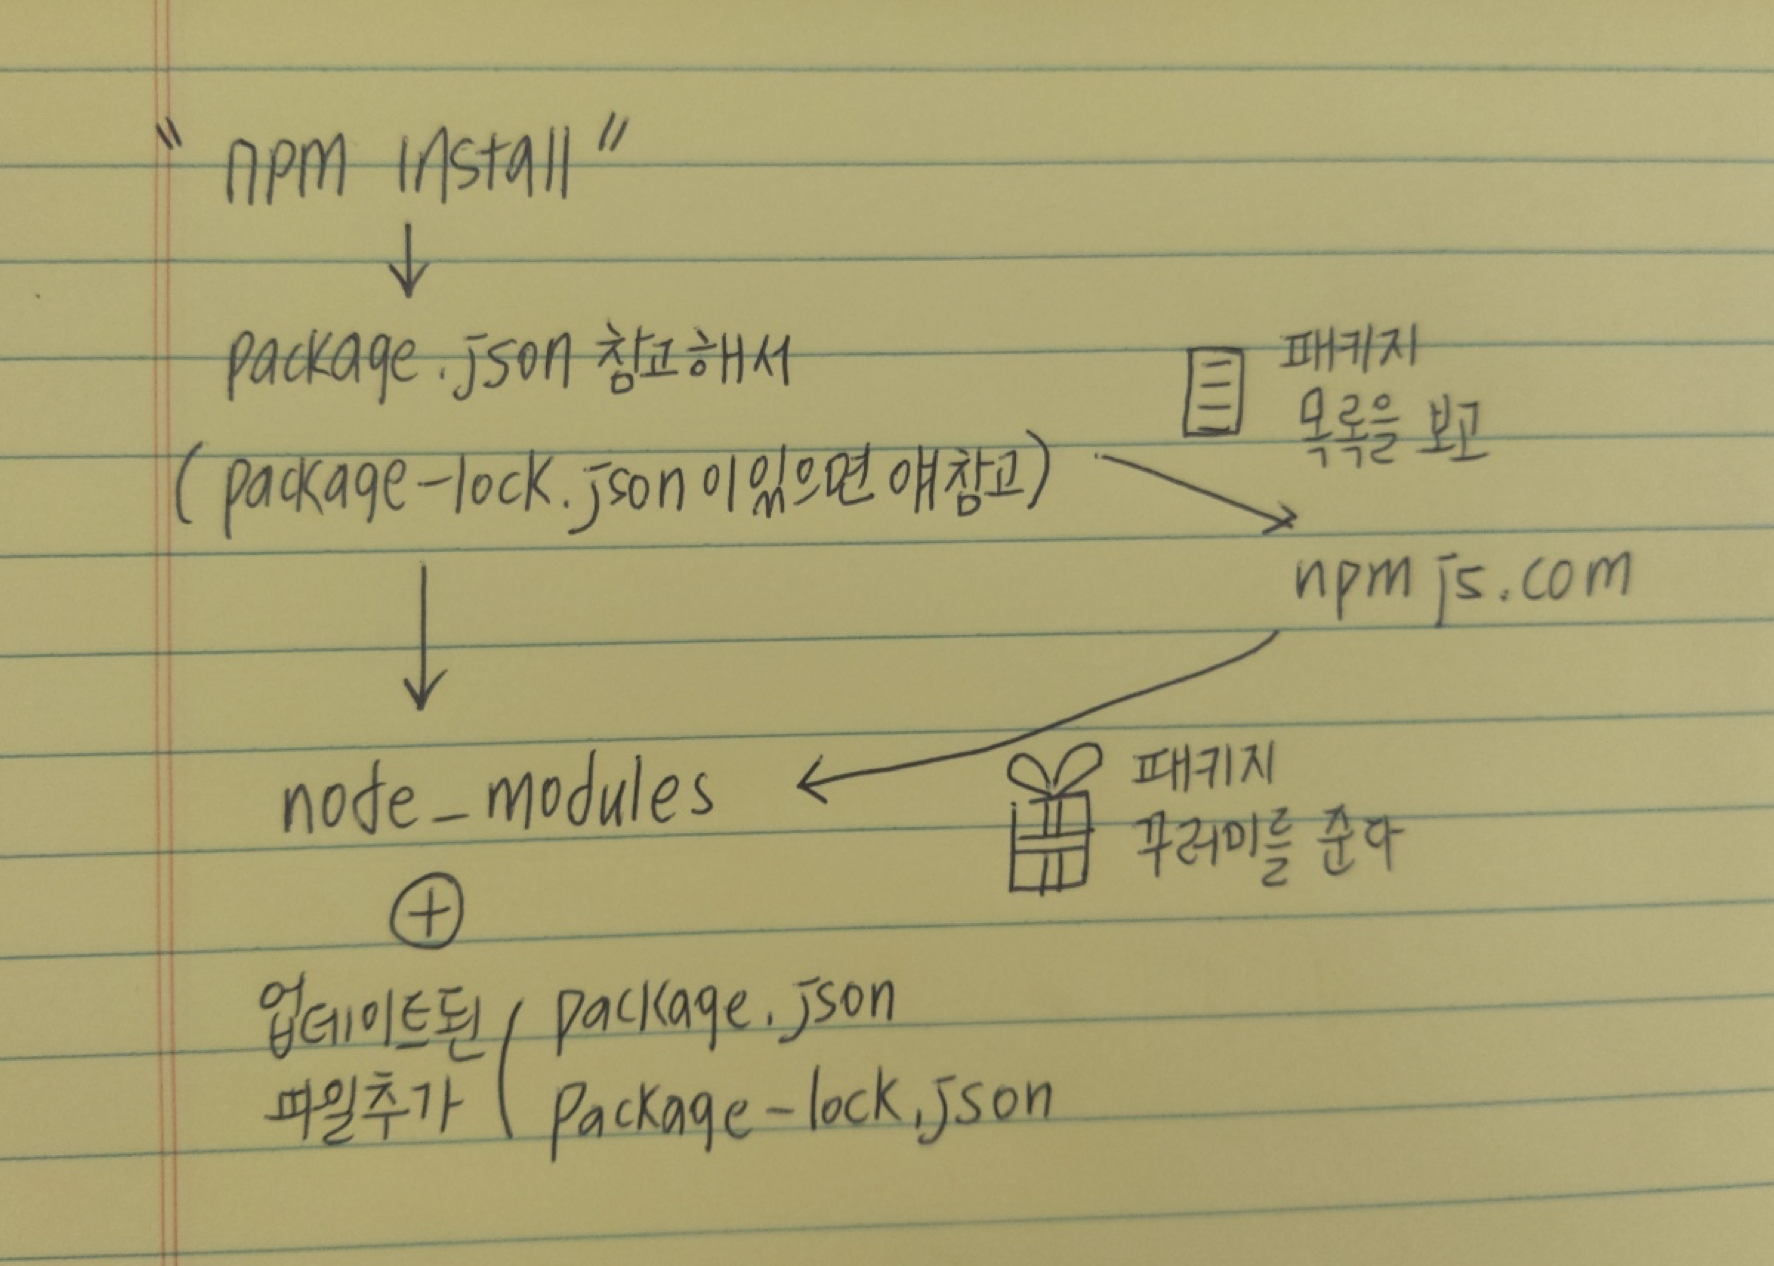 "npm install"
package.json 참고해서
(package-lock.json이 있으면 얘 참고)
패키지
목록을 보고
npm js.com
node_modules
패키지
꾸러미를 준다
+
업데이트된
파일추가
package.json
package-lock.json